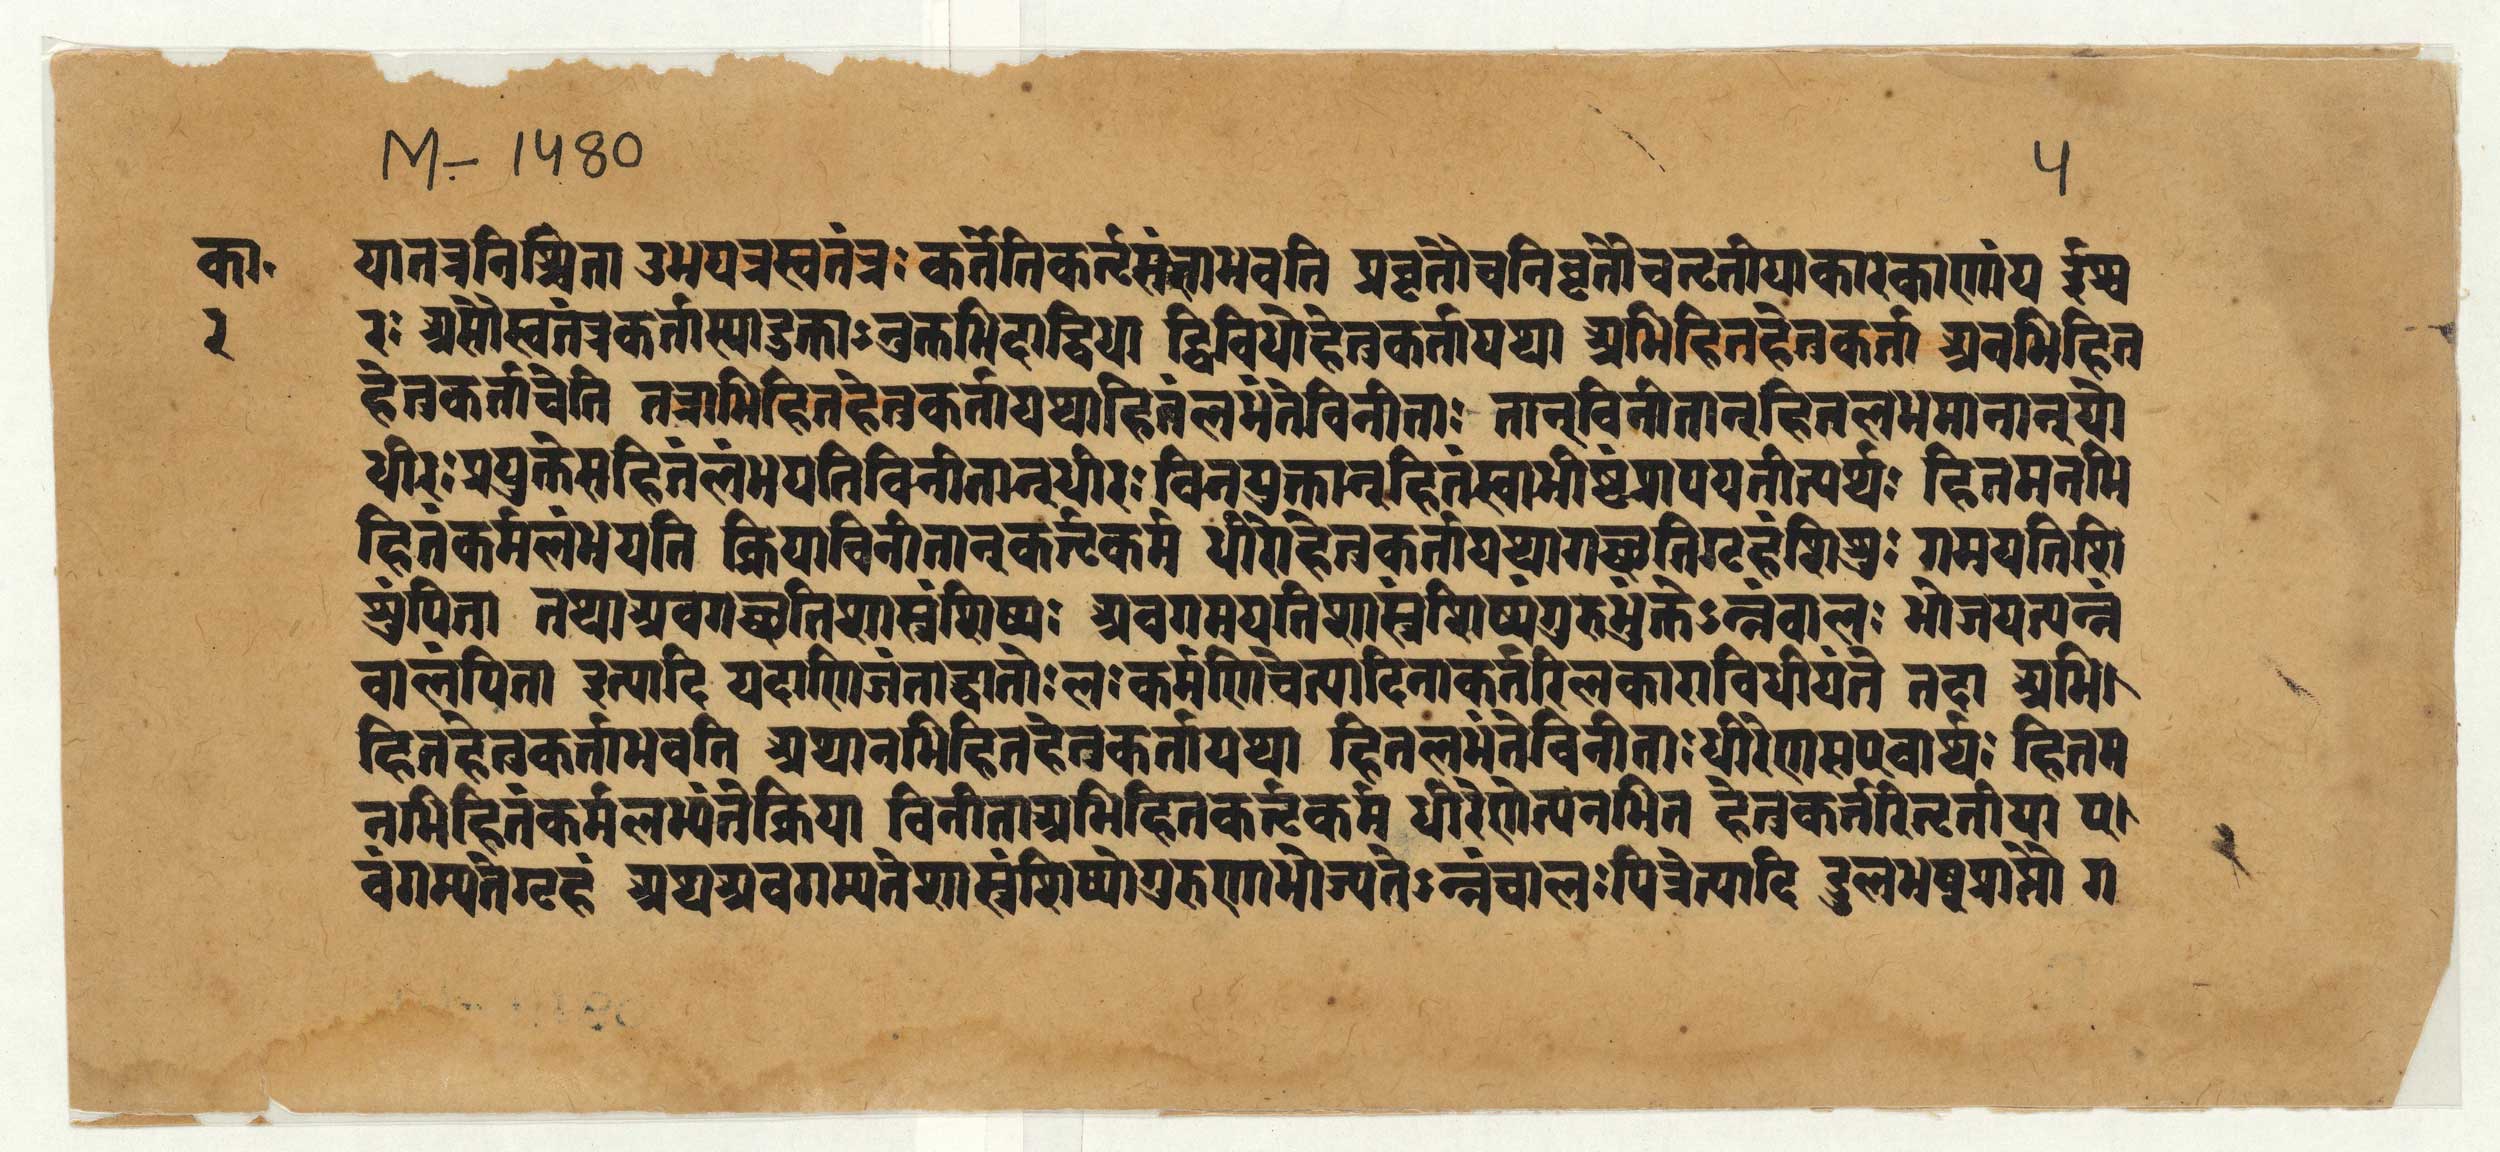 M- 1480
५
का.
२
यातत्रनिश्चिता उभयत्रस्वतंत्रः कर्त्तेतिकर्तृसंज्ञाभवति प्रवृतौचनिवृतौचतृतीयाकारकाणांय ईश्व
रः असौस्वतंत्रकर्तास्यादुक्ताऽनुक्तभिदाद्विधा द्विविधोहेतुकर्तायथा अभिहितहेतुकर्ता अनभिहित
हेतुकर्ताचेति तत्राभिहितहेतुकर्तायथाहितंलभंतेविनीताः तान्विनीतान्हितलभमानान्यो
धीरःप्रयुक्तेसहितंलंभयतिविनीतान्धीरः विनयुक्तान्हितंस्वाभीष्टंप्रापयतीत्यर्थः हितमनभि
हितंकर्मलंभयति क्रियाविनीतान्कर्तृकर्म धीरोहेतुकर्तायथागच्छतिगृहंशिशुः गमयतिशि
शुंपिता तथाअवगच्छतिशास्त्रंशिष्यः अवगमयतिशास्त्रंशिष्यंगुरुर्भुंक्तेऽन्नंवालः भोजयत्यन्नं
वालंपिता इत्यादि यदाणिजंताद्धातोःलःकर्मणिचेत्यादिनाकर्तरिलकाराविधीयंते तदा अभि।
हितहेतुकर्ताभवति अथानभिहितहेतुकर्तायथा हितलभंतेविनीताःधीरेणसएवार्थः हितम
नभिहितंकर्मलभ्यंतेक्रिया विनीताअभिहितकर्तृकर्म धीरेणेत्यनभित हेतुकर्तरितृतीया ए।
वंगम्यतेगृहं अथअवगम्यतेशास्त्रंशिष्योगुरुणाभोज्यतेऽन्नंवालःपित्रेत्यादि डुलभष्प्राप्तौ ग